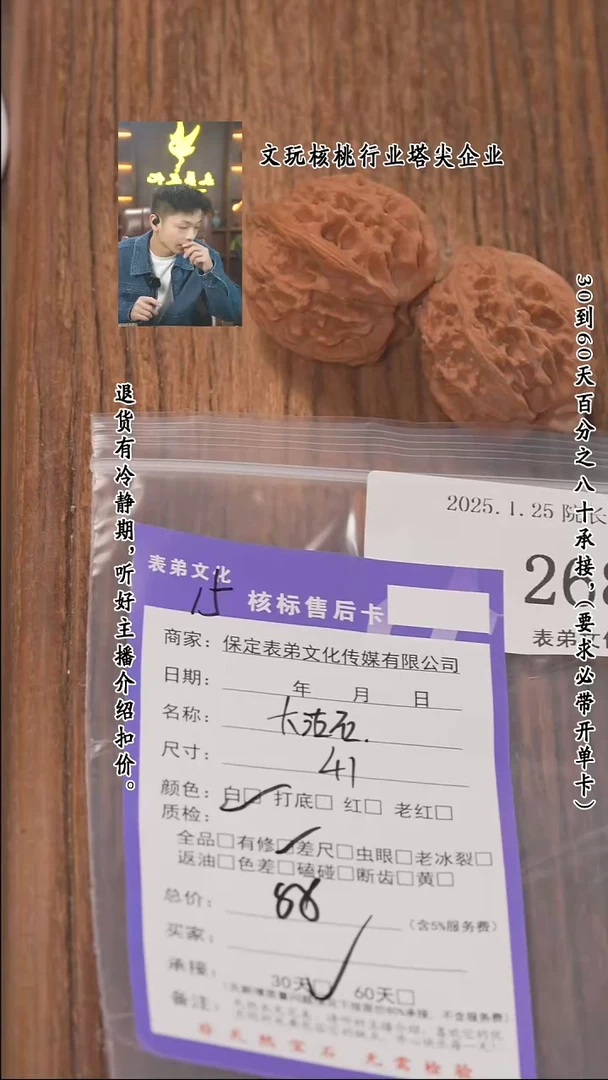 文玩核桃行业塔尖企业
30到60天百分之八十承接,(要求必带开单卡)
退货有冷静期,听好主播介绍扣价。
2025.1.25 院长
268
表弟文化
表弟文化
15
核标售后卡
商家: 保定表弟文化传媒有限公司
日期: 年 月 日
名称: 大沽石.
尺寸: 41
颜色: 白□ 打底□ 红□ 老红□
质检:
全品□有修□差尺□虫眼□老冰裂□
返油□色差□磕碰□断齿□黄□
总价: 88 (含5%服务费)
买家:
承接: 30天□ 60天□
备注:
非礼既宝石 无需检验